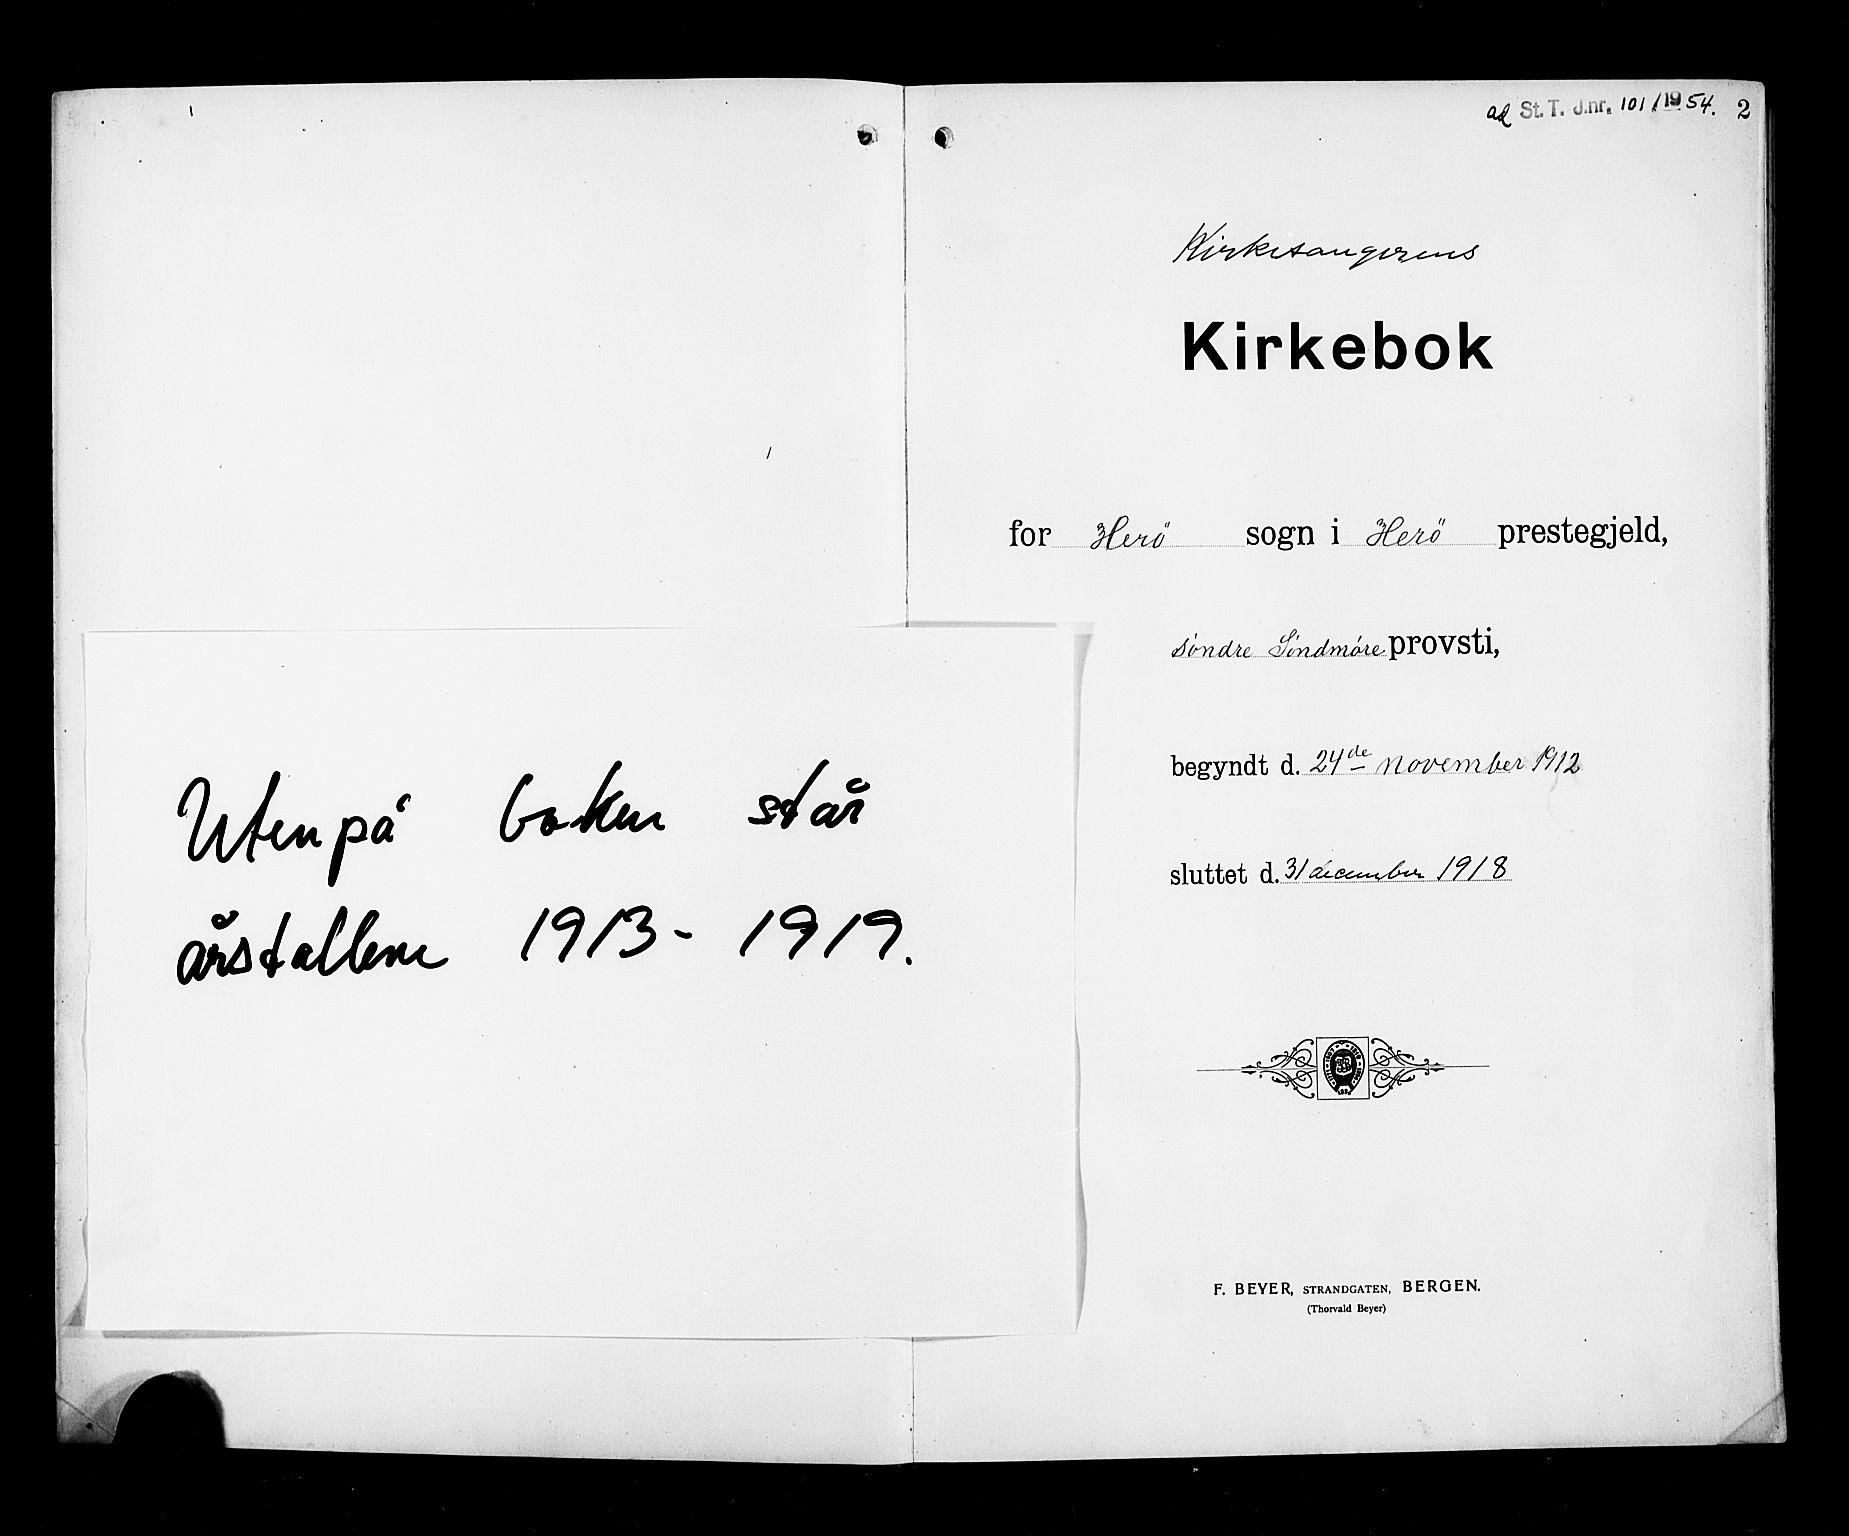 Utenpå boken står
årstallene 1913 - 1919.
ad St. T. J.nr. 101/1954. 2
Kirkesangerens
Kirkebok
for Herö sogn i Herö prestegjeld,
söndre Söndmöre provsti,
begyndt d. 24de november 1912
sluttet d. 31 december 1918
F. BEYER, STRANDGATEN, BERGEN.
(Thorvald Beyer)